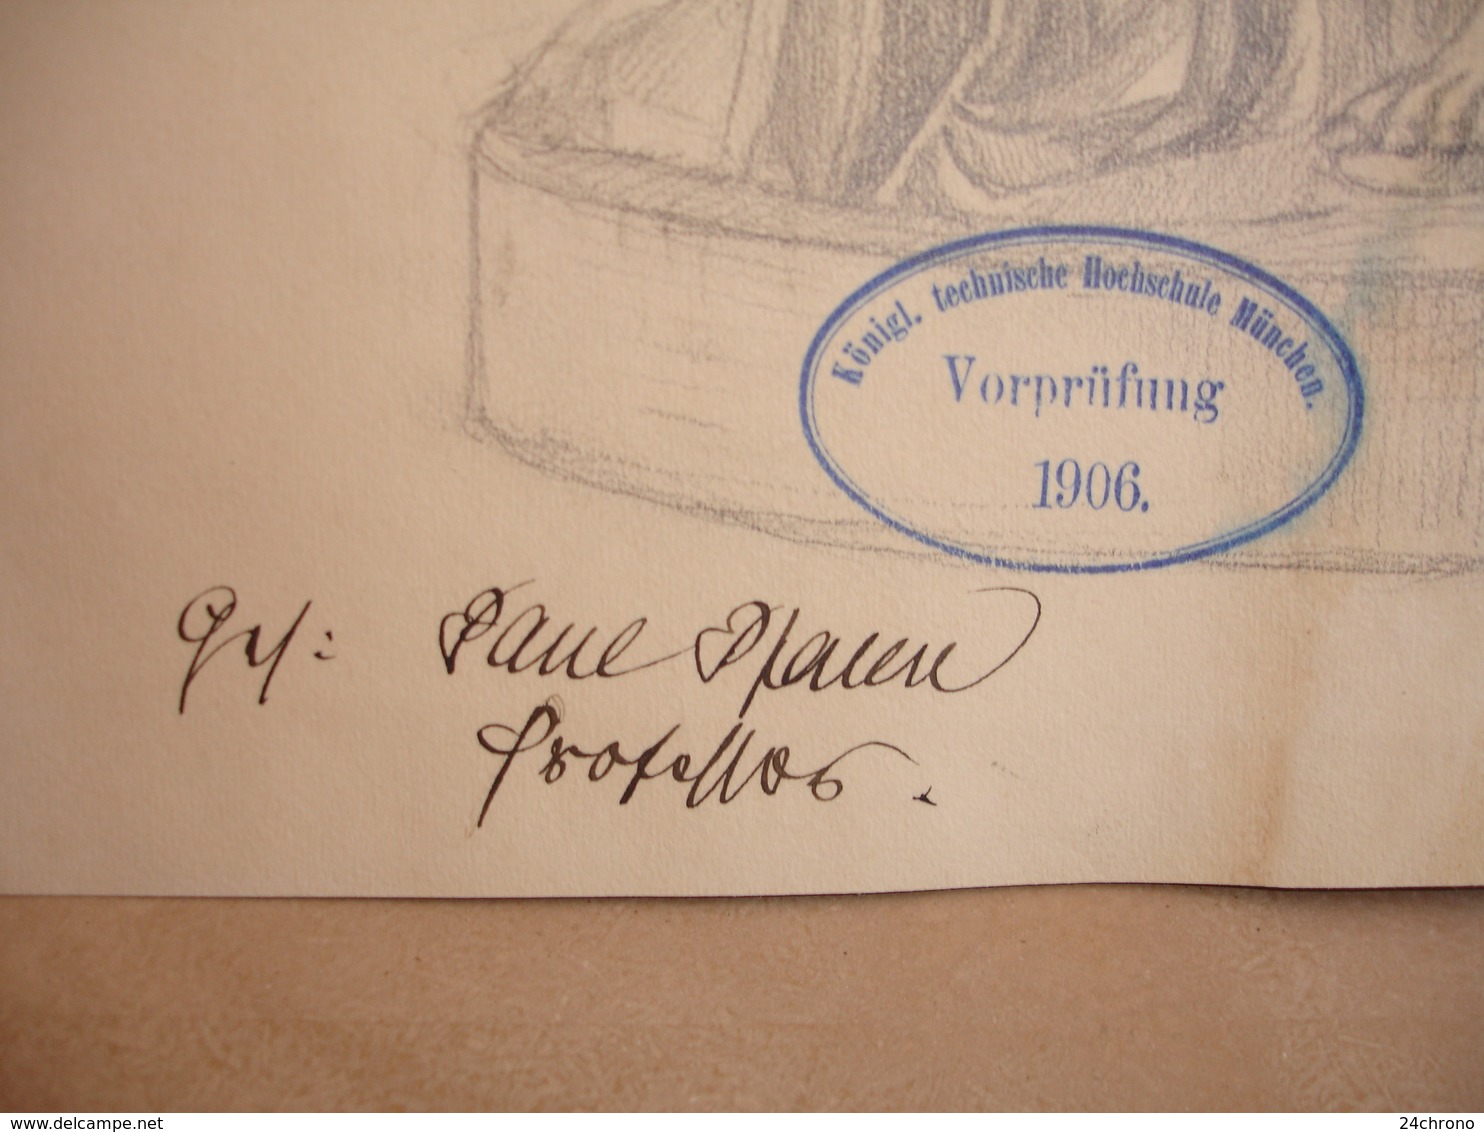 Königl. technische Hochschule München.
Vorprüfung
1906.
Ges: Paul Pfann
Professor.
delcampe.net
24chrono